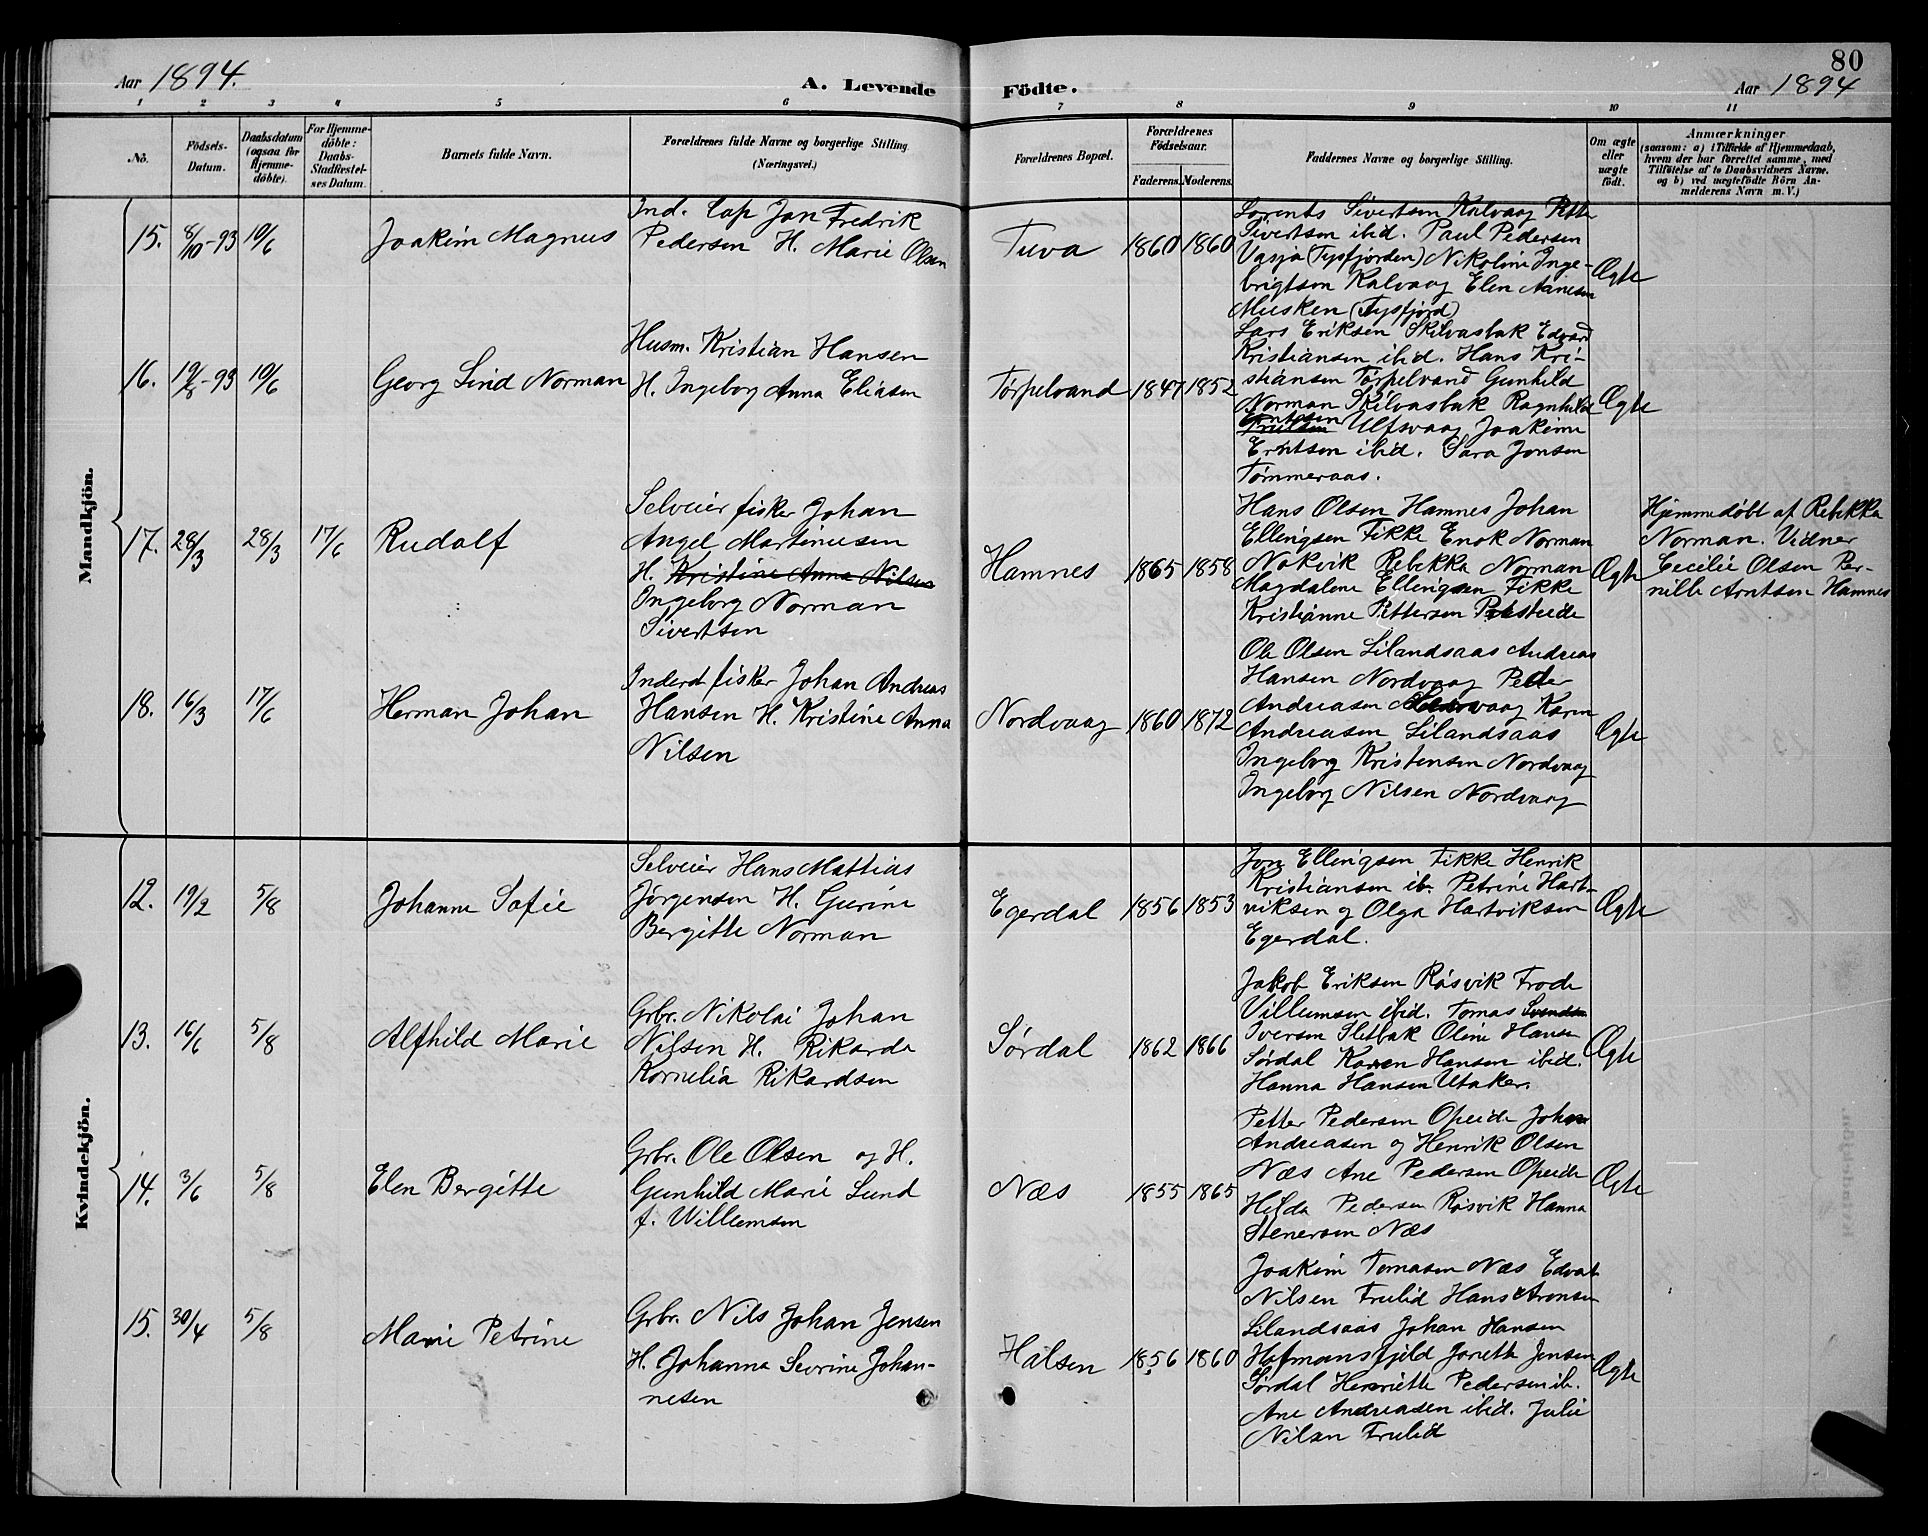 80
Aar 1894.
A. Levende
Födte.
Aar 1894
1 2 3 4 5 6 7 8 9 10 11
No.
Födsels-
Datum.
Daabsdatum
(ogsaa for
Hjemme-
döbte).
For Hjemme-
döbte:
Daabs-
Stadfæstel-
ses Datum.
Barnets fulde Navn.
Forældrenes fulde Navne og borgerlige Stilling
(Næringsvei.)
Forældrenes Bopæl.
Forældrenes
Födselsaar.
Faderens. Moderens.
Faddernes Navne og borgerlige Stilling.
Om ægte
eller
uægte
født.
Anmærkninger
(saasom: a) i Tilfælde af Hjemmedaab,
hvem der har forrettet samme, med
Tilføielse af to Daabsvidners Navne.
og b) ved uægtefödte Börn An-
melderens Navn m. V.)
Mandkjön.
15. 8/10-93 10/6
Joakim Magnus
Ind. Lap Jon Fredrik
Pedersen H. Marie Olsen
Tuva 1860 1860
Lorents Sivertsen Kalvaag Petter
Sivertsen ibid. Paul Pedersen
Vasja (Tysfjorden) Nikoline Inge-
brigtsen Kalvaag Elen Aanesen
Musken (Tysfjord)
Ægte
16. 19/8-93 10/6
Georg Lind Norman
Husm. Kristian Hansen
H. Ingeborg Anna Eliasen
Tørpelvand 1847 1852
Lars Eriksen Skilvasbak Edvard
Kristiansen ibid. Hans Kri-
stiansen Tørpelvand Gunhild
Norman Skilvasbak Ragnhild
Erntsen Ulfsvaag Joakime
Erntsen ibid. Sara Jonsen
Tømmeraas.
Ægte
17. 28/3 28/3 17/6
Rudolf
Selveier fisker Johan
Angel Martinusen
H. Kristine Anna Nilsen
Ingeborg Norman
Sivertsen
Hamnes 1865 1858
Hans Olsen Hamnes Johan
Ellingsen Fikke Enok Norman
Nokvik Rebekka Norman
Magdalene Ellingsen Fikke
Kristianne Pettersen Presteide
Ægte
Hjemmedøbt af Rebekka
Norman. Vidner
Cecilie Olsen Per-
nille Arntsen Hamnes
18. 16/3 17/6
Herman Johan
Inderst fisker Johan Andreas
Hansen H. Kristine Anna
Nilsen
Nordvaag 1860 1872
Ole Olsen Lilandsaas Andreas
Hansen Nordvaag Peder
Andreasen Karen
Andreasen Lilandsaas
Ingeborg Kristensen Nordvaag
Ingeborg Nilsen Nordvaag
Ægte
Kvindekjön.
12. 19/2 5/8
Johanne Sofie
Selveier Hans Mattias
Jørgensen H. Gurine
Bergitte Norman
Egerdal 1856 1853
Jon Ellingsen Fikke Henrik
Kristiansen ib. Petrine Hart-
viksen og Olga Hartviksen
Egerdal.
Ægte
13. 16/6 5/8
Alfhild Marie
Grbr. Nikolai Johan
Nilsen H. Rikarda
Kornelia Rikardsen
Sørdal 1862 1866
Jakob Eriksen Røsvik Frode
Villumsen ibid. Tomas Svendsen
Iversen Sletbak Oline Hansen
Sørdal Karen Hansen ibid.
Hanna Hansen Utaker.
Ægte
14. 3/6 5/8
Elen Bergitte
Grbr. Ole Olsen og H.
Gunhild Marie Lund
f. Willumsen
Næs 1855 1865
Petter Pedersen Opeide Johan
Andreasen og Henrik Olsen
Næs Ane Pedersen Opeide
Hilda Pedersen Røsvik Hanna
Stenersen Næs
Ægte
15. 30/4 5/8
Marie Petrine
Grbr. Nils Johan Jensen
H. Johanna Sevrine Johan-
nesen
Halsen 1856 1860
Joakim Tomasen Næs Edvart
Nilsen Frulid Hans Aronsen
Lilandsaas Johan Hansen
Hofmansfjeld Jonette Jensen
Sørdal Henriette Pedersen ib.
Ane Andreasen ibid. Julie
Nilsen Frulid
Ægte